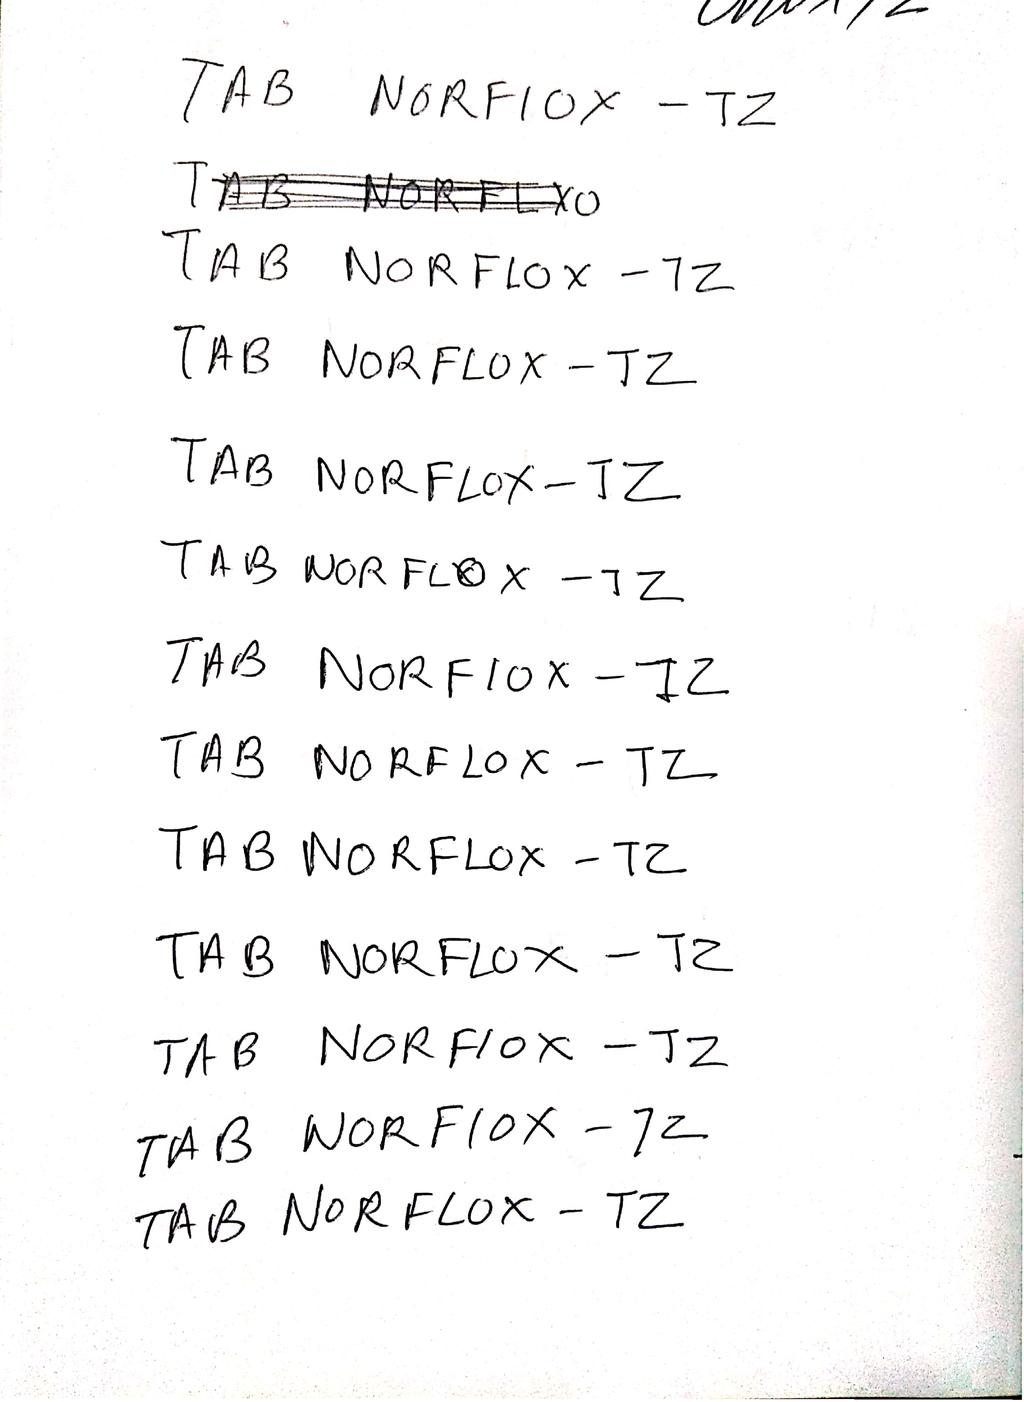 TAB NORFLOX - TZ
TAB NORFLXO
TAB NORFLOX - TZ
TAB NORFLOX - TZ
TAB NORFLOX - TZ
TAB NORFLOX - TZ
TAB NORFLOX - TZ
TAB NORFLOX - TZ
TAB NORFLOX - TZ
TAB NORFLOX - TZ
TAB NORFLOX - TZ
TAB NORFLOX - TZ
TAB NORFLOX - TZ